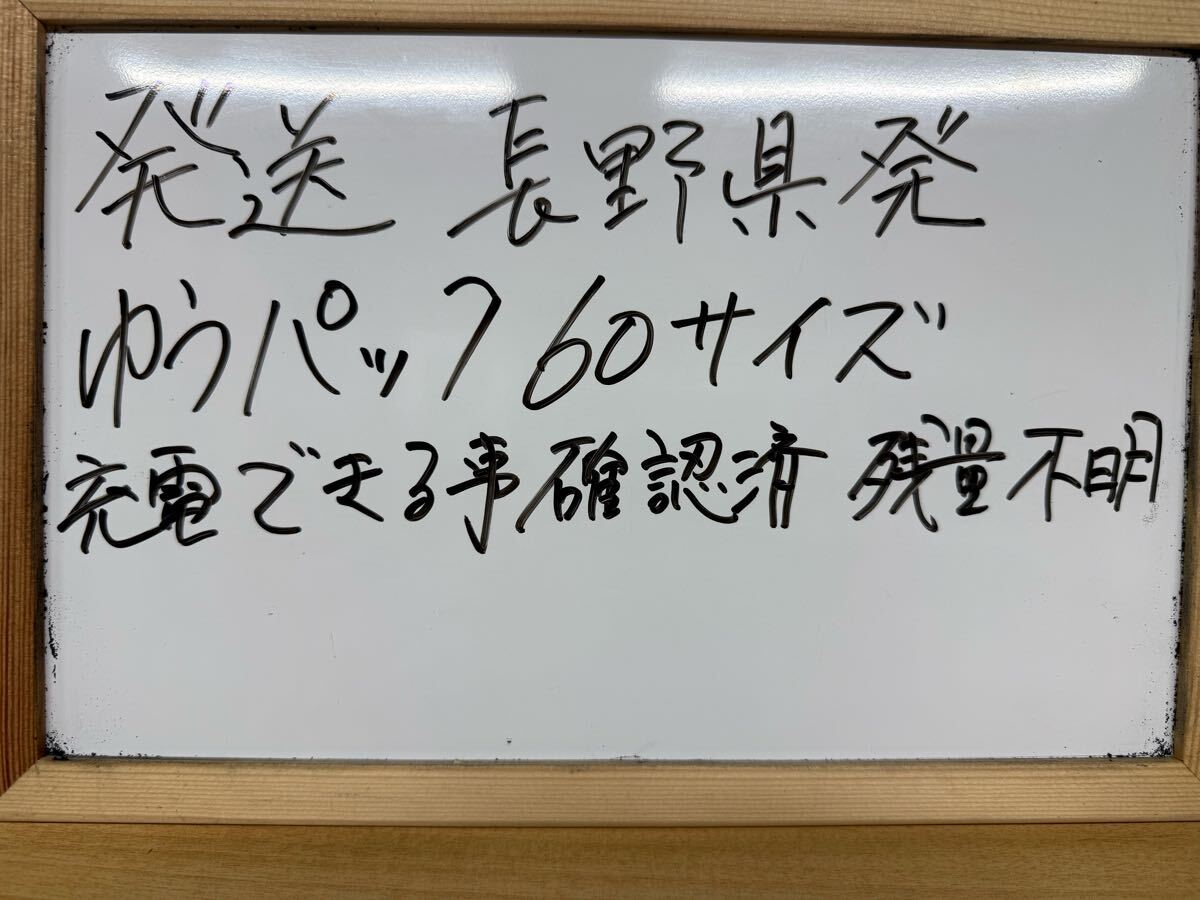 発送 長野県発
ゆうパック60サイズ
充電できる事確認済 残量不明